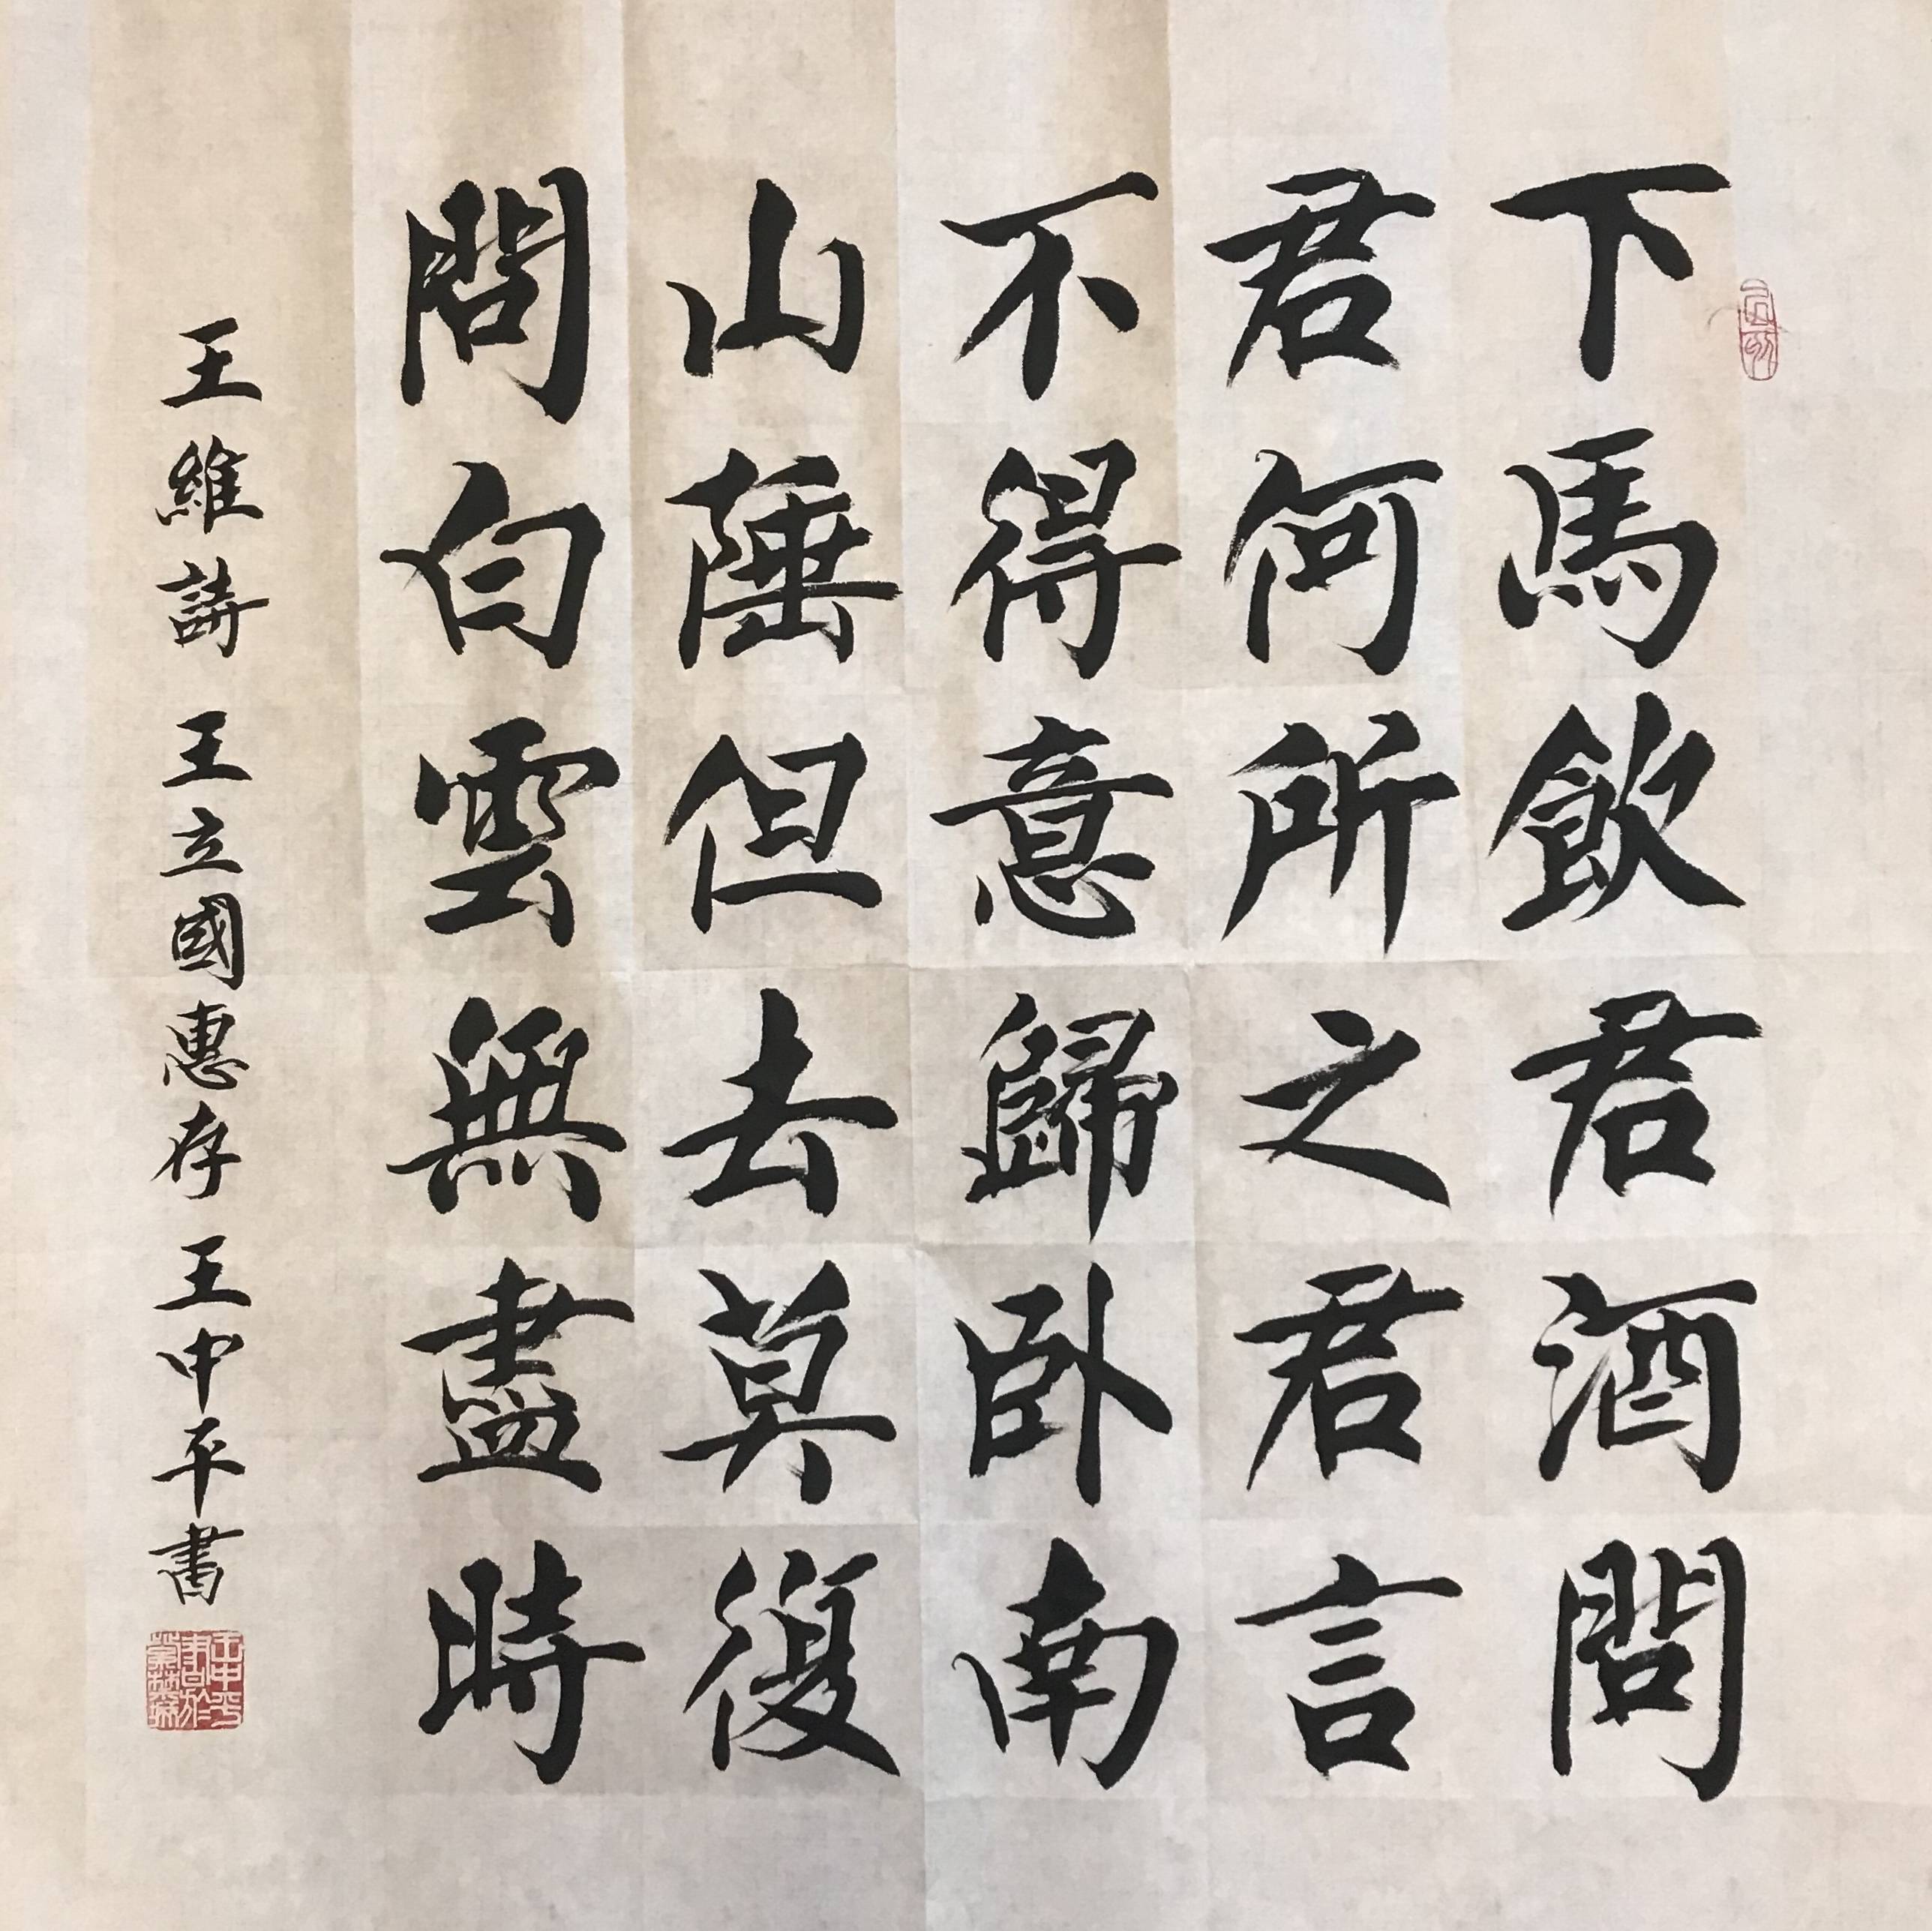 下馬飲君酒問
君何所之君言
不得意歸卧南
山陲但去莫復
問白雲無盡時
王維詩 王立國惠存 王中平書